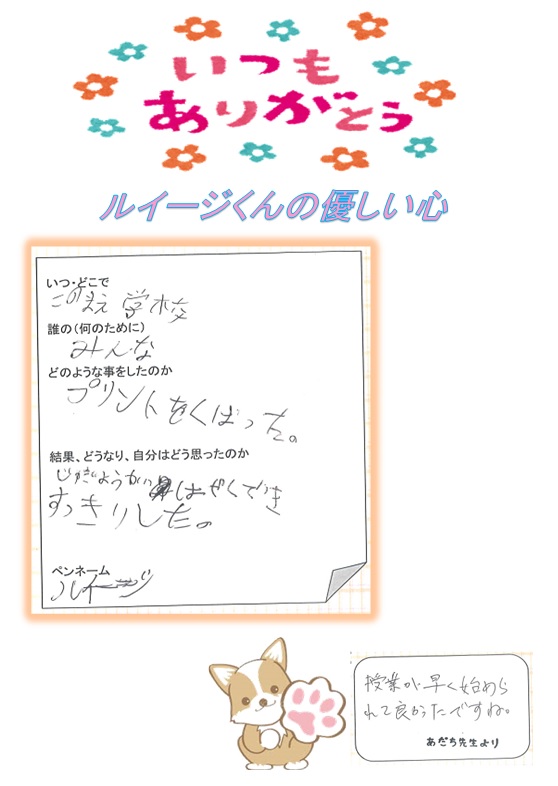 いつも
ありがとう
ルイージくんの優しい心
いつ・どこで
このまえ 学校
誰の(何のために)
みんな
どのような事をしたのか
プリントをくばった。
結果、どうなり、自分はどう思ったのか
じゅぎょうが はやくでき
すっきりした。
ペンネーム
ルイージ
授業が早く始めら
れて良かったですね。
あだち先生より